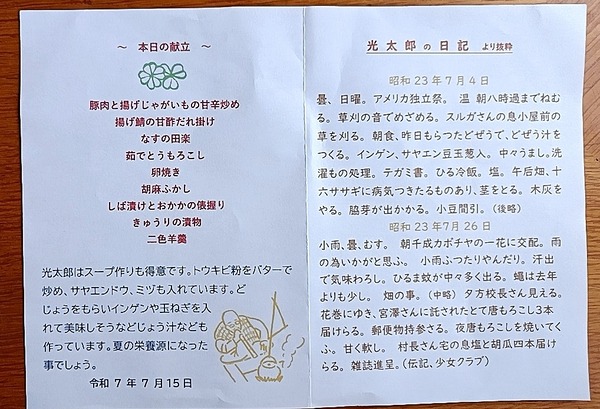 ～ 本日の献立 ～
豚肉と揚げじゃがいもの甘辛炒め
揚げ鯖の甘酢だれ掛け
なすの田楽
茹でとうもろこし
卵焼き
胡麻ふかし
しば漬けとおかかの俵握り
きゅうりの漬物
二色羊羹
光太郎はスープ作りも得意です。トウキビ粉をバターで
炒め、サヤエンドウ、ミヅも入れています。ど
じょうをもらいインゲンや玉ねぎを入
れて美味しそうなどじょう汁なども
作っています。夏の栄養源になった
事でしょう。
令和7年7月15日
光太郎の日記 より抜粋
昭和23年7月4日
曇、日曜。アメリカ独立祭。 温 朝八時過までねむ
る。草刈の音でめざめる。スルガさんの息小屋前の
草を刈る。朝食、昨日もらつたどぜうで、どぜう汁をつ
くる。インゲン、サヤエン豆玉葱入。中々うまし。洗
濯もの処理。テガミ書。ひる冷飯。塩。午后畑、十
六ササギに病気つきたるものあり、茎をとる。木灰を
やる。脇芽が出かかる。小豆間引。（後略）
昭和23年7月26日
小雨、曇、むす。 朝千成カボチヤの一花に交配。雨
の為いかがと思ふ。 小雨ふつたりやんだり。汗出
で気味わろし。ひるま蚊が中々多く出る。蠅は去年
よりも少し。 畑の事。（中略） 夕方校長さん見える。
花巻にゆき、宮澤さんに託されたとて唐もろこし3本
届けらる。郵便物持参さる。夜唐もろこしを焼いてく
ふ。甘く軟し。 村長さん宅の息塩と胡瓜四本届け
らる。雑誌進呈。（伝記、少女クラブ）